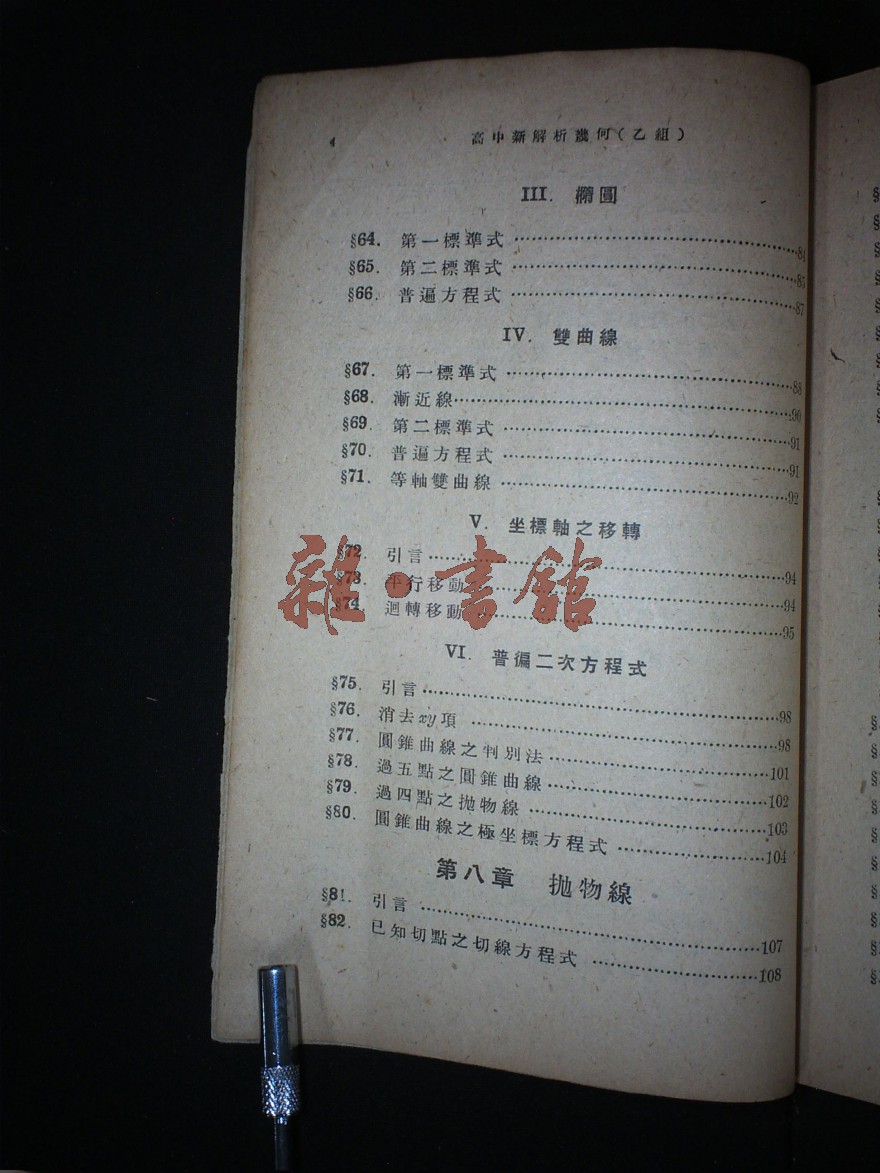 4 高中新解析幾何(乙組)
III. 橢圓
§64. 第一標準式 84
§65. 第二標準式 85
§66. 普遍方程式 87
IV. 雙曲線
§67. 第一標準式 88
§68. 漸近線 90
§69. 第二標準式 91
§70. 普遍方程式 91
§71. 等軸雙曲線 92
V. 坐標軸之移轉
§72. 引言 94
§73. 平行移動 94
§74. 迴轉移動 95
雜·書館
VI. 普徧二次方程式
§75. 引言 98
§76. 消去xy項 98
§77. 圓錐曲線之判別法 101
§78. 過五點之圓錐曲線 102
§79. 過四點之拋物線 103
§80. 圓錐曲線之極坐標方程式 104
第八章 拋物線
§81. 引言 107
§82. 已知切點之切線方程式 108